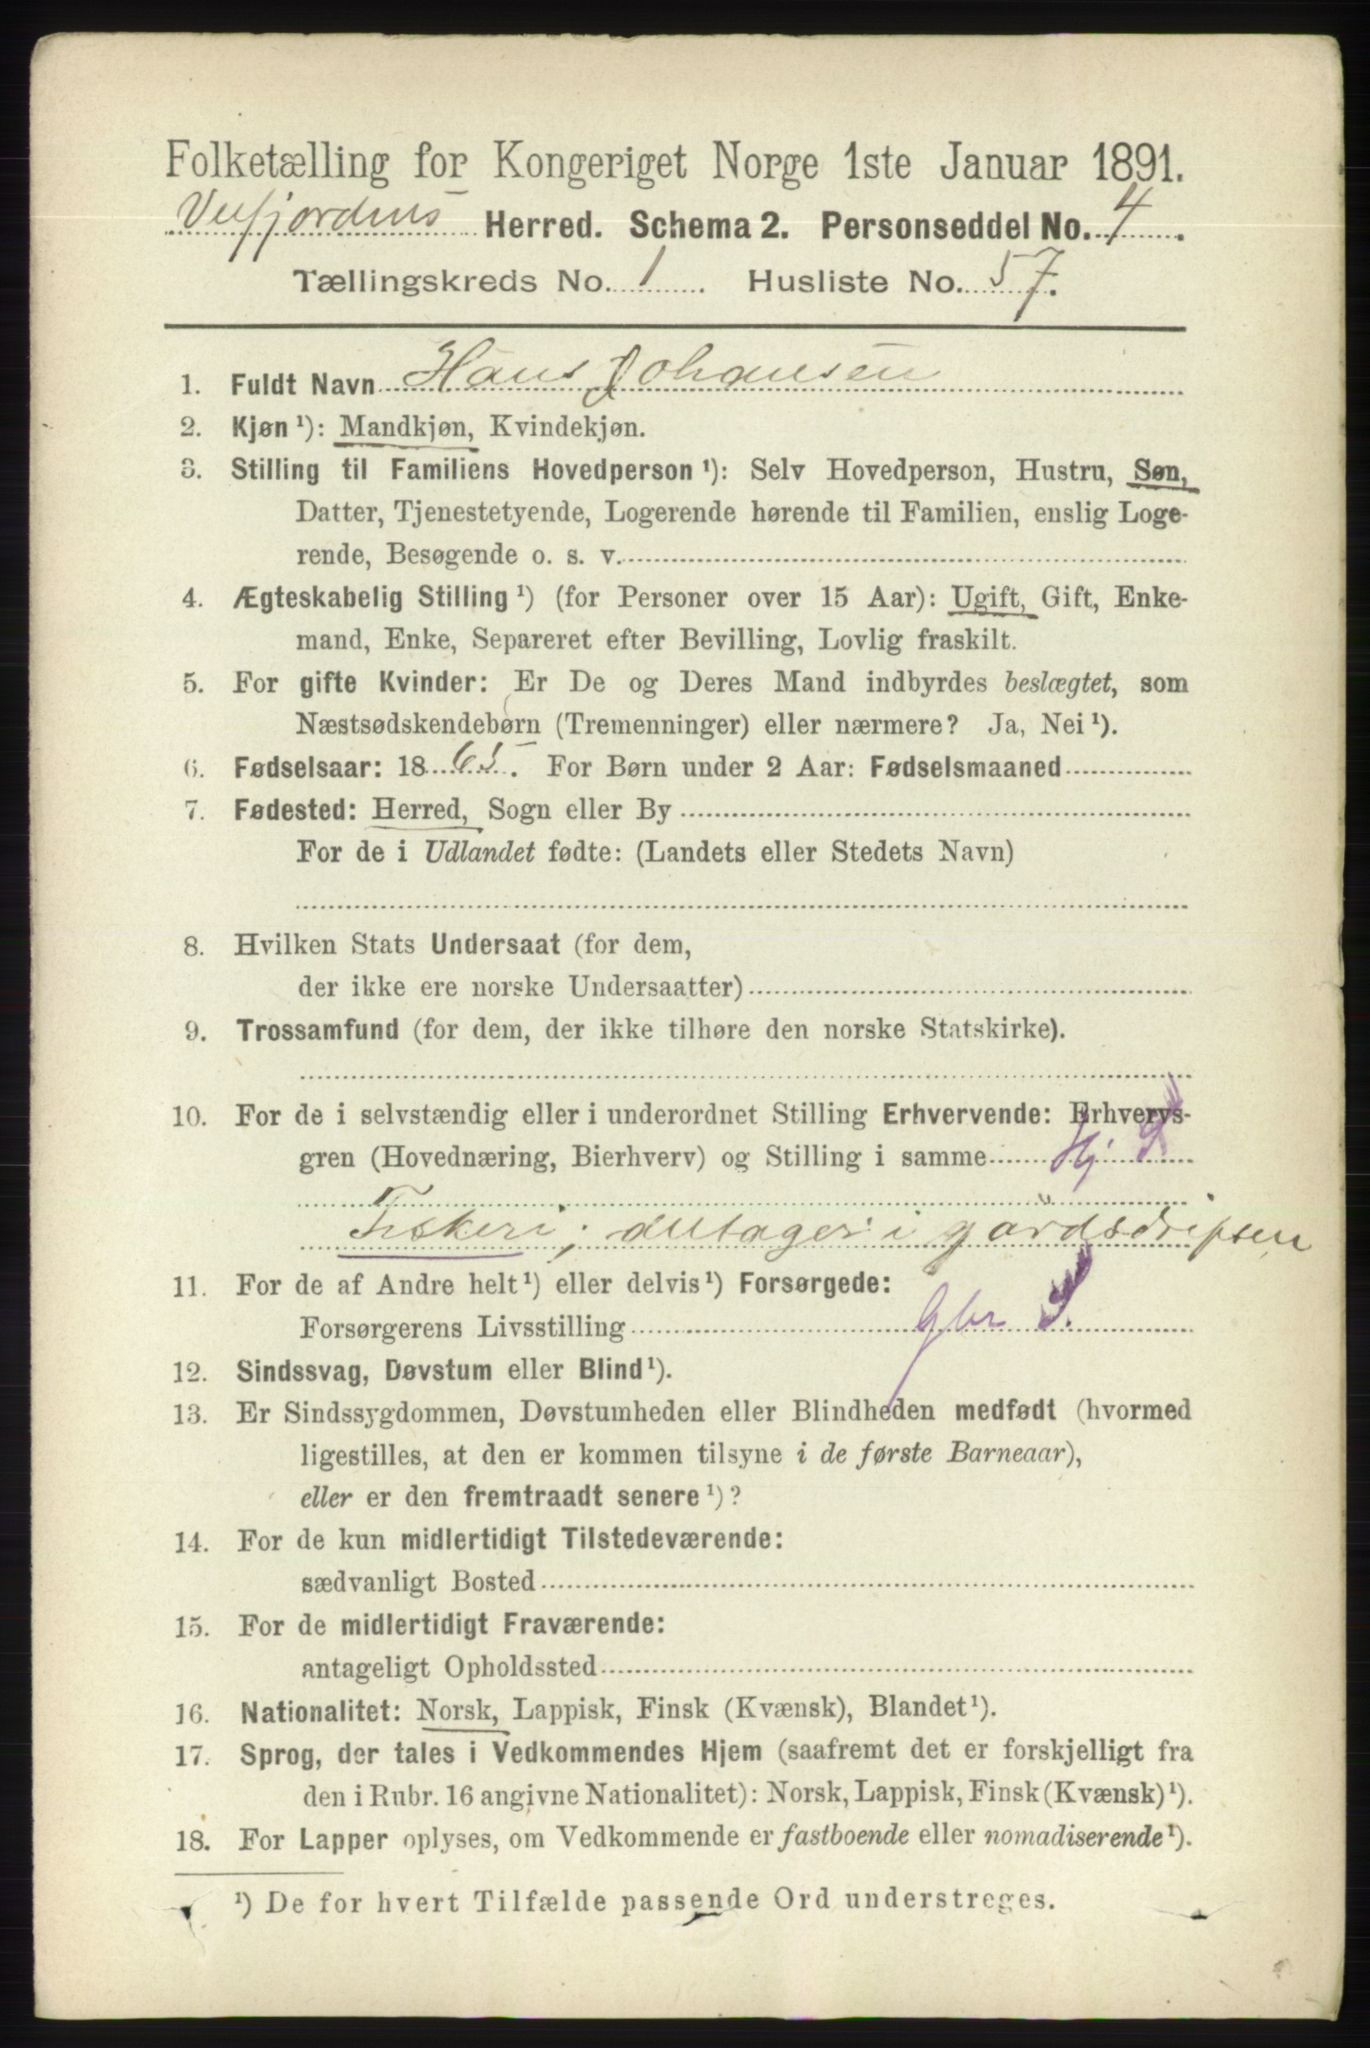 Folketælling for Kongeriget Norge 1ste Januar 1891.
Velfjordens Herred. Schema 2. Personseddel No. 4.
Tællingskreds No. 1 Husliste No. 57.
1. Fuldt Navn Hans Johansen
2. Kjøn ¹): Mandkjøn, Kvindekjøn.
3. Stilling til Familiens Hovedperson ¹): Selv Hovedperson, Hustru, Søn,
Datter, Tjenestetyende, Logerende hørende til Familien, enslig Loge-
rende, Besøgende o. s. v.
4. Ægteskabelig Stilling ¹) (for Personer over 15 Aar): Ugift, Gift, Enke-
mand, Enke, Separeret efter Bevilling, Lovlig fraskilt.
5. For gifte Kvinder: Er De og Deres Mand indbyrdes beslægtet, som
Næstsødskendebørn (Tremenninger) eller nærmere? Ja, Nei ¹).
6. Fødselsaar: 1865. For Børn under 2 Aar: Fødselsmaaned
7. Fødested: Herred, Sogn eller By
For de i Udlandet fødte: (Landets eller Stedets Navn)
8. Hvilken Stats Undersaat (for dem,
der ikke ere norske Undersaatter)
9. Trossamfund (for dem, der ikke tilhøre den norske Statskirke).
10. For de i selvstændig eller i underordnet Stilling Erhvervende: Erhvervs-
gren (Hovednæring, Bierhverv) og Stilling i samme Hj
Fiskeri; deltager i gårdsdriften
11. For de af Andre helt ¹) eller delvis ¹) Forsørgede:
Forsørgerens Livsstilling Gbr S.
12. Sindssvag, Døvstum eller Blind ¹).
13. Er Sindssygdommen, Døvstumheden eller Blindheden medfødt (hvormed
ligestilles, at den er kommen tilsyne i de første Barneaar),
eller er den fremtraadt senere ¹)?
14. For de kun midlertidigt Tilstedeværende:
sædvanligt Bosted
15. For de midlertidigt Fraværende:
antageligt Opholdssted
16. Nationalitet: Norsk, Lappisk, Finsk (Kvænsk), Blandet ¹).
17. Sprog, der tales i Vedkommendes Hjem (saafremt det er forskjelligt fra
den i Rubr. 16 angivne Nationalitet): Norsk, Lappisk, Finsk (Kvænsk) ¹).
18. For Lapper oplyses, om Vedkommende er fastboende eller nomadiserende ¹).
¹) De for hvert Tilfælde passende Ord understreges.